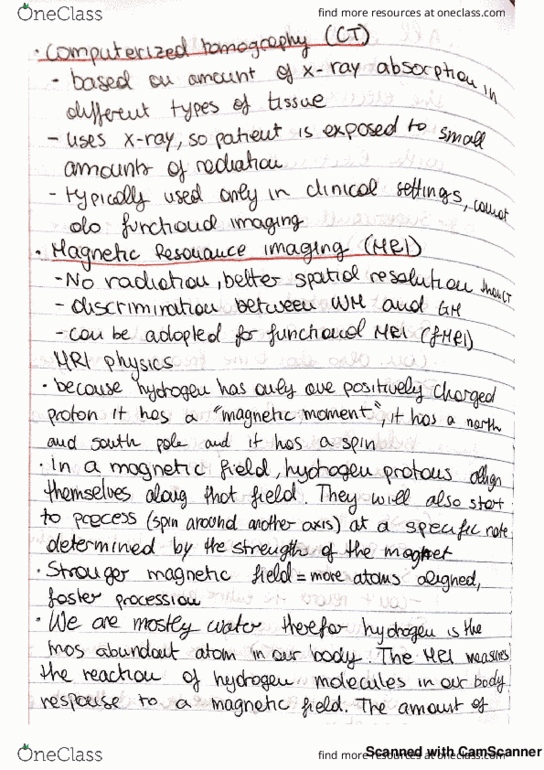 OneClass
find more resources at oneclass.com
· Computerized tomography (CT)
- based on amount of x-ray absorption in
different types of tissue
- uses x-ray, so patient is exposed to small
amounts of radiation
- typically used only in clinical settings, cannot
do functional imaging
· Magnetic Resonance imaging (MRI)
- No radiation, better spatial resolution than CT
- discrimination between WM and GM
- can be adopted for functional MRI (fMRI)
MRI physics
· because hydrogen has only one positively charged
proton it has a "magnetic moment", it has a north
and south pole and it has a spin
· in a magnetic field, hydrogen protons align
themselves along that field. They will also start
to precess (spin around another axis) at a specific rate
determined by the strengths of the magnet
· Stronger magnetic field = more atoms aligned,
faster procession
· We are mostly water therefor hydrogen is the
mos abundant atom in our body. The MRI measures
the reaction of hydrogen molecules in our body
response to a magnetic field. The amount of
OneClass
find more resources at oneclass.com
Scanned with CamScanner